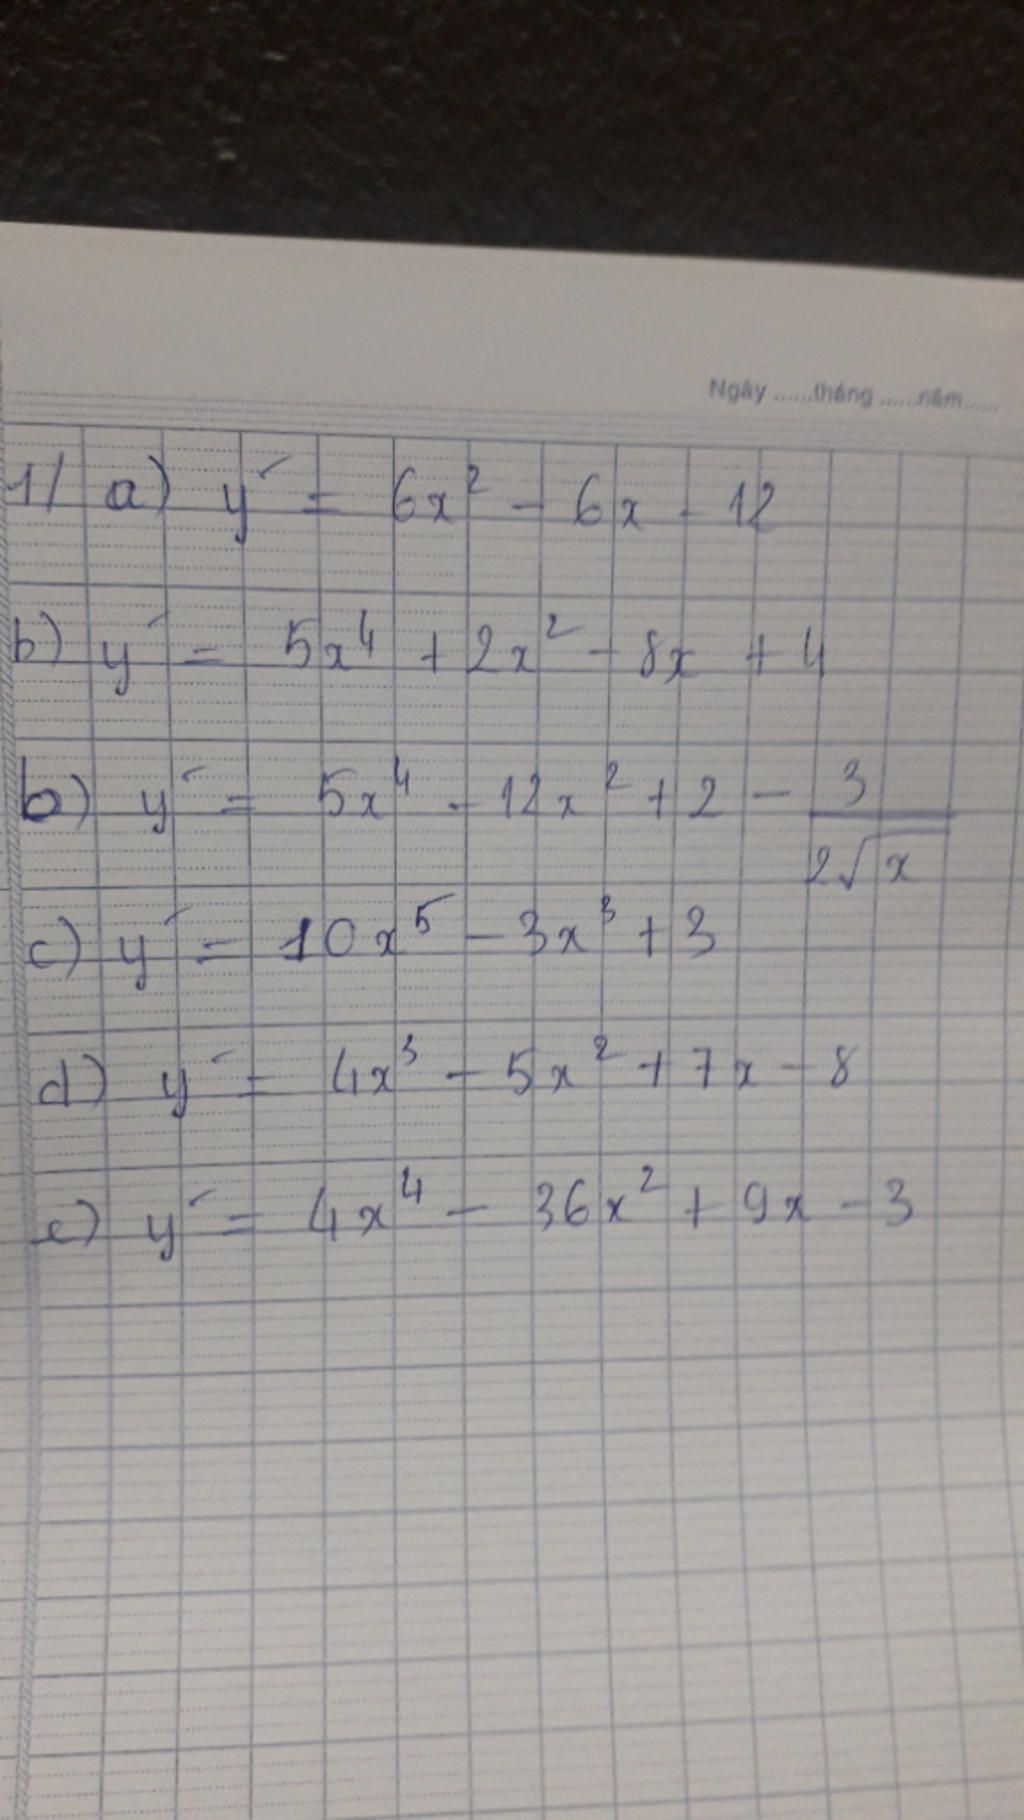 Ngày ......tháng ......năm......
1/ a) y' = 6x² - 6x - 12
b) y' = 5x⁴ + 2x² - 8x + 4
b) y' = 5x⁴ - 12x² + 2 - 3/(2√x)
c) y' = 10x⁵ - 3x³ + 3
d) y' = 4x³ - 5x² + 7x - 8
e) y' = 4x⁴ - 36x² + 9x - 3